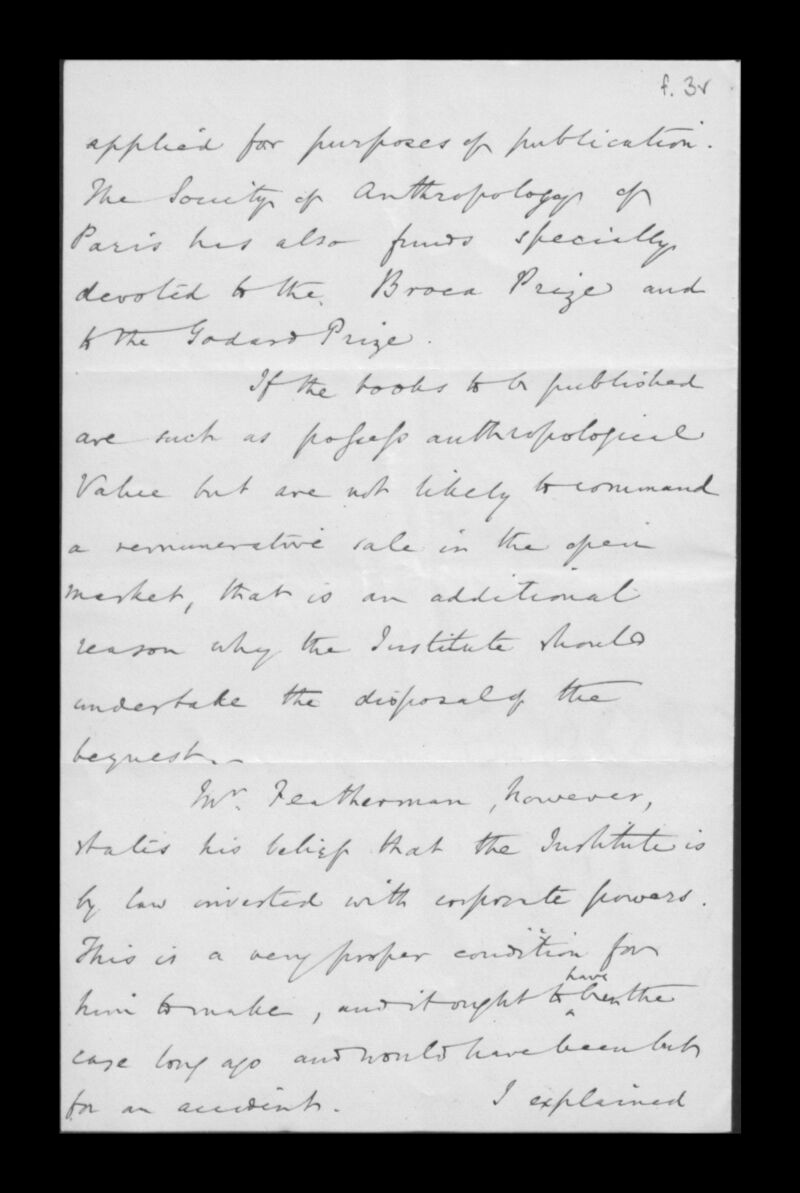 f. 3r
applied for purposes of publication.
The Society of Anthropology of
Paris has also funds specially
devoted to the Broca Prize and
to the Godard Prize.
If the books to be published
are such as possess anthropological
Value but are not likely to command
a remunerative sale in the open
market, that is an additional
reason why the Institute should
undertake the disposal of the
bequest. –
Mr. Featherman, however,
states his belief that the Institute is
by law invested with corporate powers.
This is a very proper condition for
have
him to make, and it ought to been the
case long ago and would have been but
for an accident. I explained